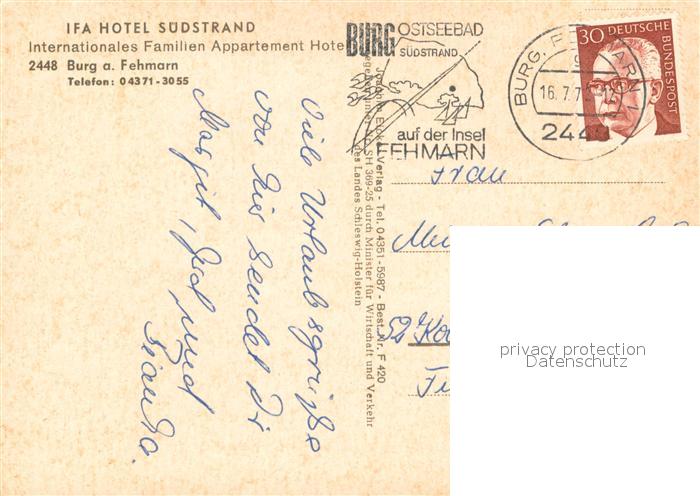 IFA HOTEL SÜDSTRAND
Internationales Familien Appartement Hote
2448 Burg a. Fehmarn
Telefon: 04371-3055
BURG OSTSEEBAD
SÜDSTRAND
auf der Insel
FEHMARN
BURG, FE
16.7.7
244
30 DEUTSCHE BUNDESPOST
Verlag - Tel. 04351-5987 - Best.-Nr. F 420
SH 369-25 durch Minister für Wirtschaft und Verkehr
des Landes Schleswig-Holstein
Viele Urlaubsgrüße
von hier sendet Dir
Margit, und
Frau
52
privacy protection
Datenschutz